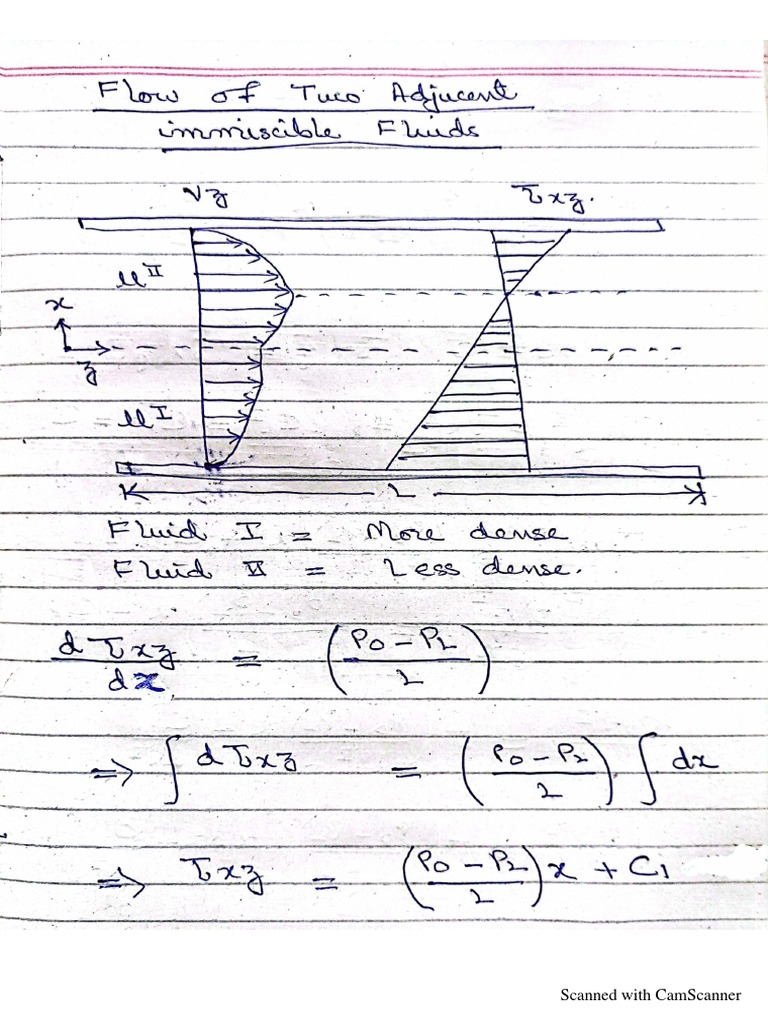 Flow of Two Adjucent
immiscible Fluids
Vz τxz.
μII
x
z
μI
L
Fluid I = More dense
Fluid II = Less dense.
dτxz/dx = (P0 - PL / L)
=> ∫ dτxz = (P0 - PL / L) ∫ dx
=> τxz = (P0 - PL / L) x + C1
Scanned with CamScanner